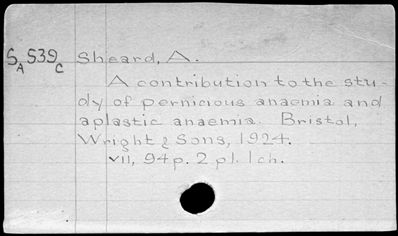 SA539C Sheard, A.
A contribution to the stu-
dy of pernicious anaemia and
aplastic anaemia. Bristol,
Wright & Sons, 1924.
vii, 94p. 2 pl. 1 ch.